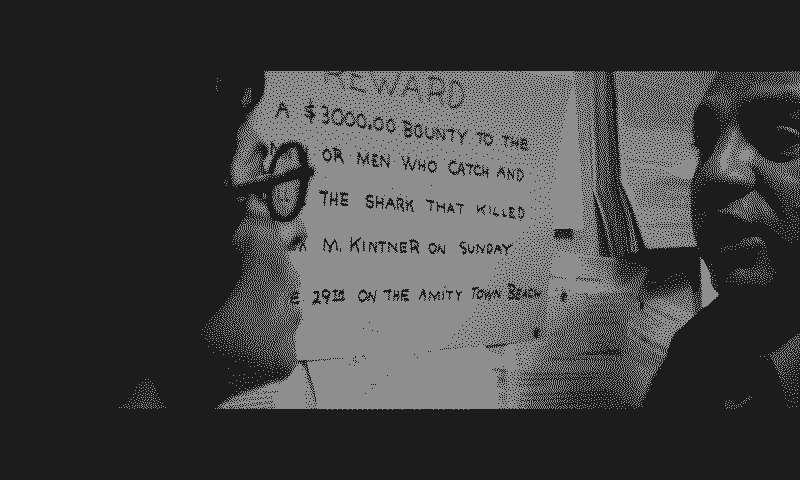 REWARD
A $3000.00 BOUNTY TO THE
OR MEN WHO CATCH AND
THE SHARK THAT KILLED
M. KINTNER ON SUNDAY
29TH ON THE AMITY TOWN BEACH